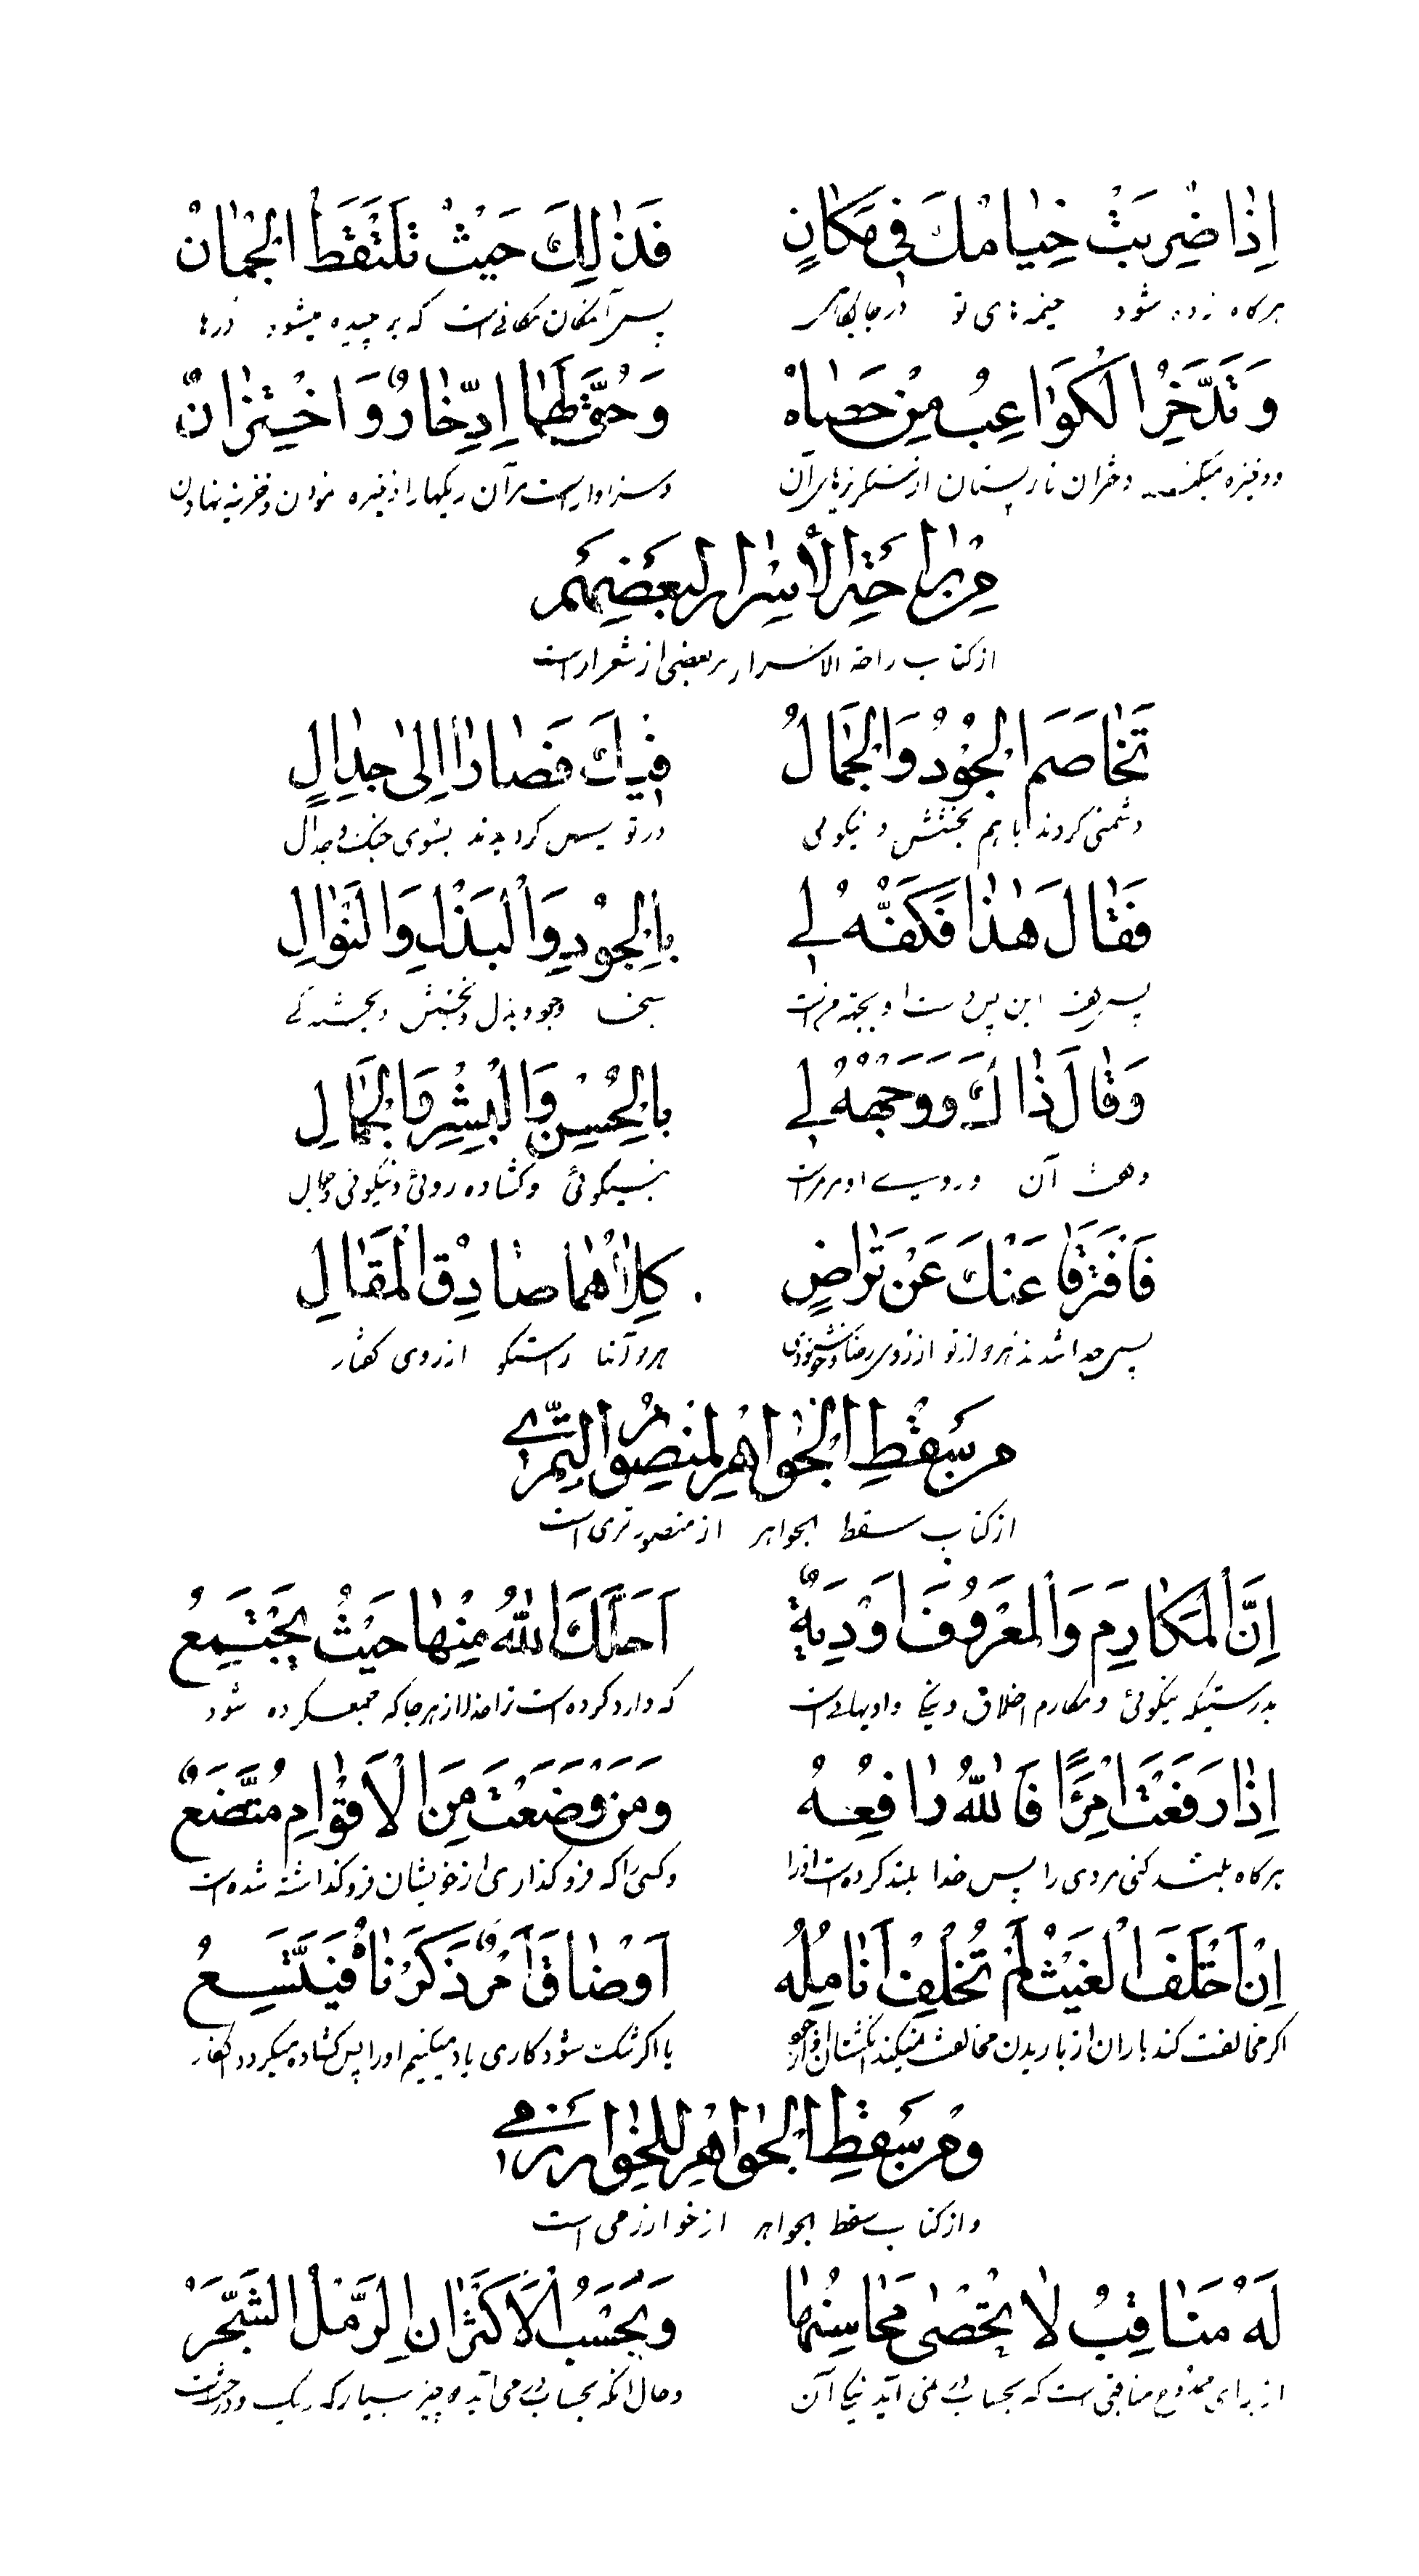 اِذٰا ضُرِبَتْ خِيٰامُكَ فِي مَكٰانٍ فَذٰلِكَ حَيْثُ تَلْتَقَطُ الْجُمٰانُ
هرکاه زده شود خیمه‌های تو در جایگاهی پس آنمکان مکانی است که برچیده میشود درها
وَتَدَّخِرُ الْكَوٰاعِبُ مِنْ حَصٰاهُ وَحُقَّ لَهٰا اِدِّخٰارٌ وَاخْتِزٰانٌ
و ذخیره میکنند دختران نارپستان از سنگریزهای آن و سزاوار است مر آن ریکها را ذخیره نمودن و خزینه نهادن
مِنْ رٰاحَةِ الْاَسْرٰارِ لِبَعْضِهِمْ
از کتاب راحة الاسرار بعضی از شعرا است
تَخٰاصَمَ الْجُوْدُ وَالْجَمٰالُ فِيْكَ فَصٰارٰا اِلىٰ جِدٰالٍ
دشمنی کردند با هم بخشش و نیکوئی در تو پس کردیدند بسوی جنک و جدال
فَقٰالَ هٰذٰا فَكَفُّهُ لِي بِالْجُوْدِ وَالْبَذْلِ وَالنَّوٰالِ
پس گفت این پس دست او بجهة من است وجود و بذل و بخشش
وَقٰالَ ذٰاكَ وَوَجْهُهُ لِي بِالْحُسْنِ وَالْبِشْرِ وَالْجَمٰالِ
و گفت آن و روی او مر مراست بنیکوئی و کشاده روئی و نیکوئی و جمال
فَافْتَرَقٰا عَنْكَ عَنْ تَرٰاضٍ كِلٰاهُمٰا صٰادِقُ الْمَقٰالِ
پس جدا شدند هر دو از تو از روی رضا و خوشنودی هر دو آنها راستکو از روی کفتار
مِنْ سَقْطِ الْجَوٰاهِرِ لِمَنْصُوْرٍ النَّمَرِيّ
از کتاب سقط الجواهر از منصور نمری است
اِنَّ الْمَكٰارِمَ وَالْمَعْرُوْفَ اَوْدِيَةٌ اَحَلَّكَ اللّٰهُ مِنْهٰا حَيْثُ يَجْتَمِعُ
بدرستیکه نیکوئی و مکارم اخلاق و نیکی وادیهائی است که وارد کرده است ترا خدا از هر جا که جمع کرده شود
اِذٰا رَفَعْتَ امْرَءًا فَاللّٰهُ رٰافِعُهُ وَمَنْ وَضَعْتَ مِنَ الْاَقْوٰامِ مُتَّضَعٌ
هرکاه بلند کنی مردی را پس خدا بلند کرده است او را و کسی را که فرو کذاری از خویشان فرو کذاشته شده است
اِنْ اَخْلَفَ الْغَيْثُ لَمْ تُخْلِفْ اَنٰامِلُهُ اَوْ ضٰاقَ اَمْرٌ ذَكَرْنٰاهُ فَيَتَّسِعُ
اکر مخالفت کند باران از باریدن مخالفت نمیکند انکشتان او از جود یا اکر تنک شود کاری یاد میکنیم او را پس کشاده میکردد
وَمِنْ سَقْطِ الْجَوٰاهِرِ لِلْخوٰارَزْمِيّ
و از کتاب سقط الجواهر از خوارزمی است
لَهُ مَنٰاقِبُ لٰا يُحْصىٰ مَحٰاسِنُهٰا وَيُحْسَبُ الْاَكْثَرٰانِ الرَّمْلُ وَالشَّجَرُ
از برای ممدوح مناقبی است که بحساب در نمی آید نیکی آن و حال آنکه بحساب در می آید دو چیز بسیار که ریک و درخت است